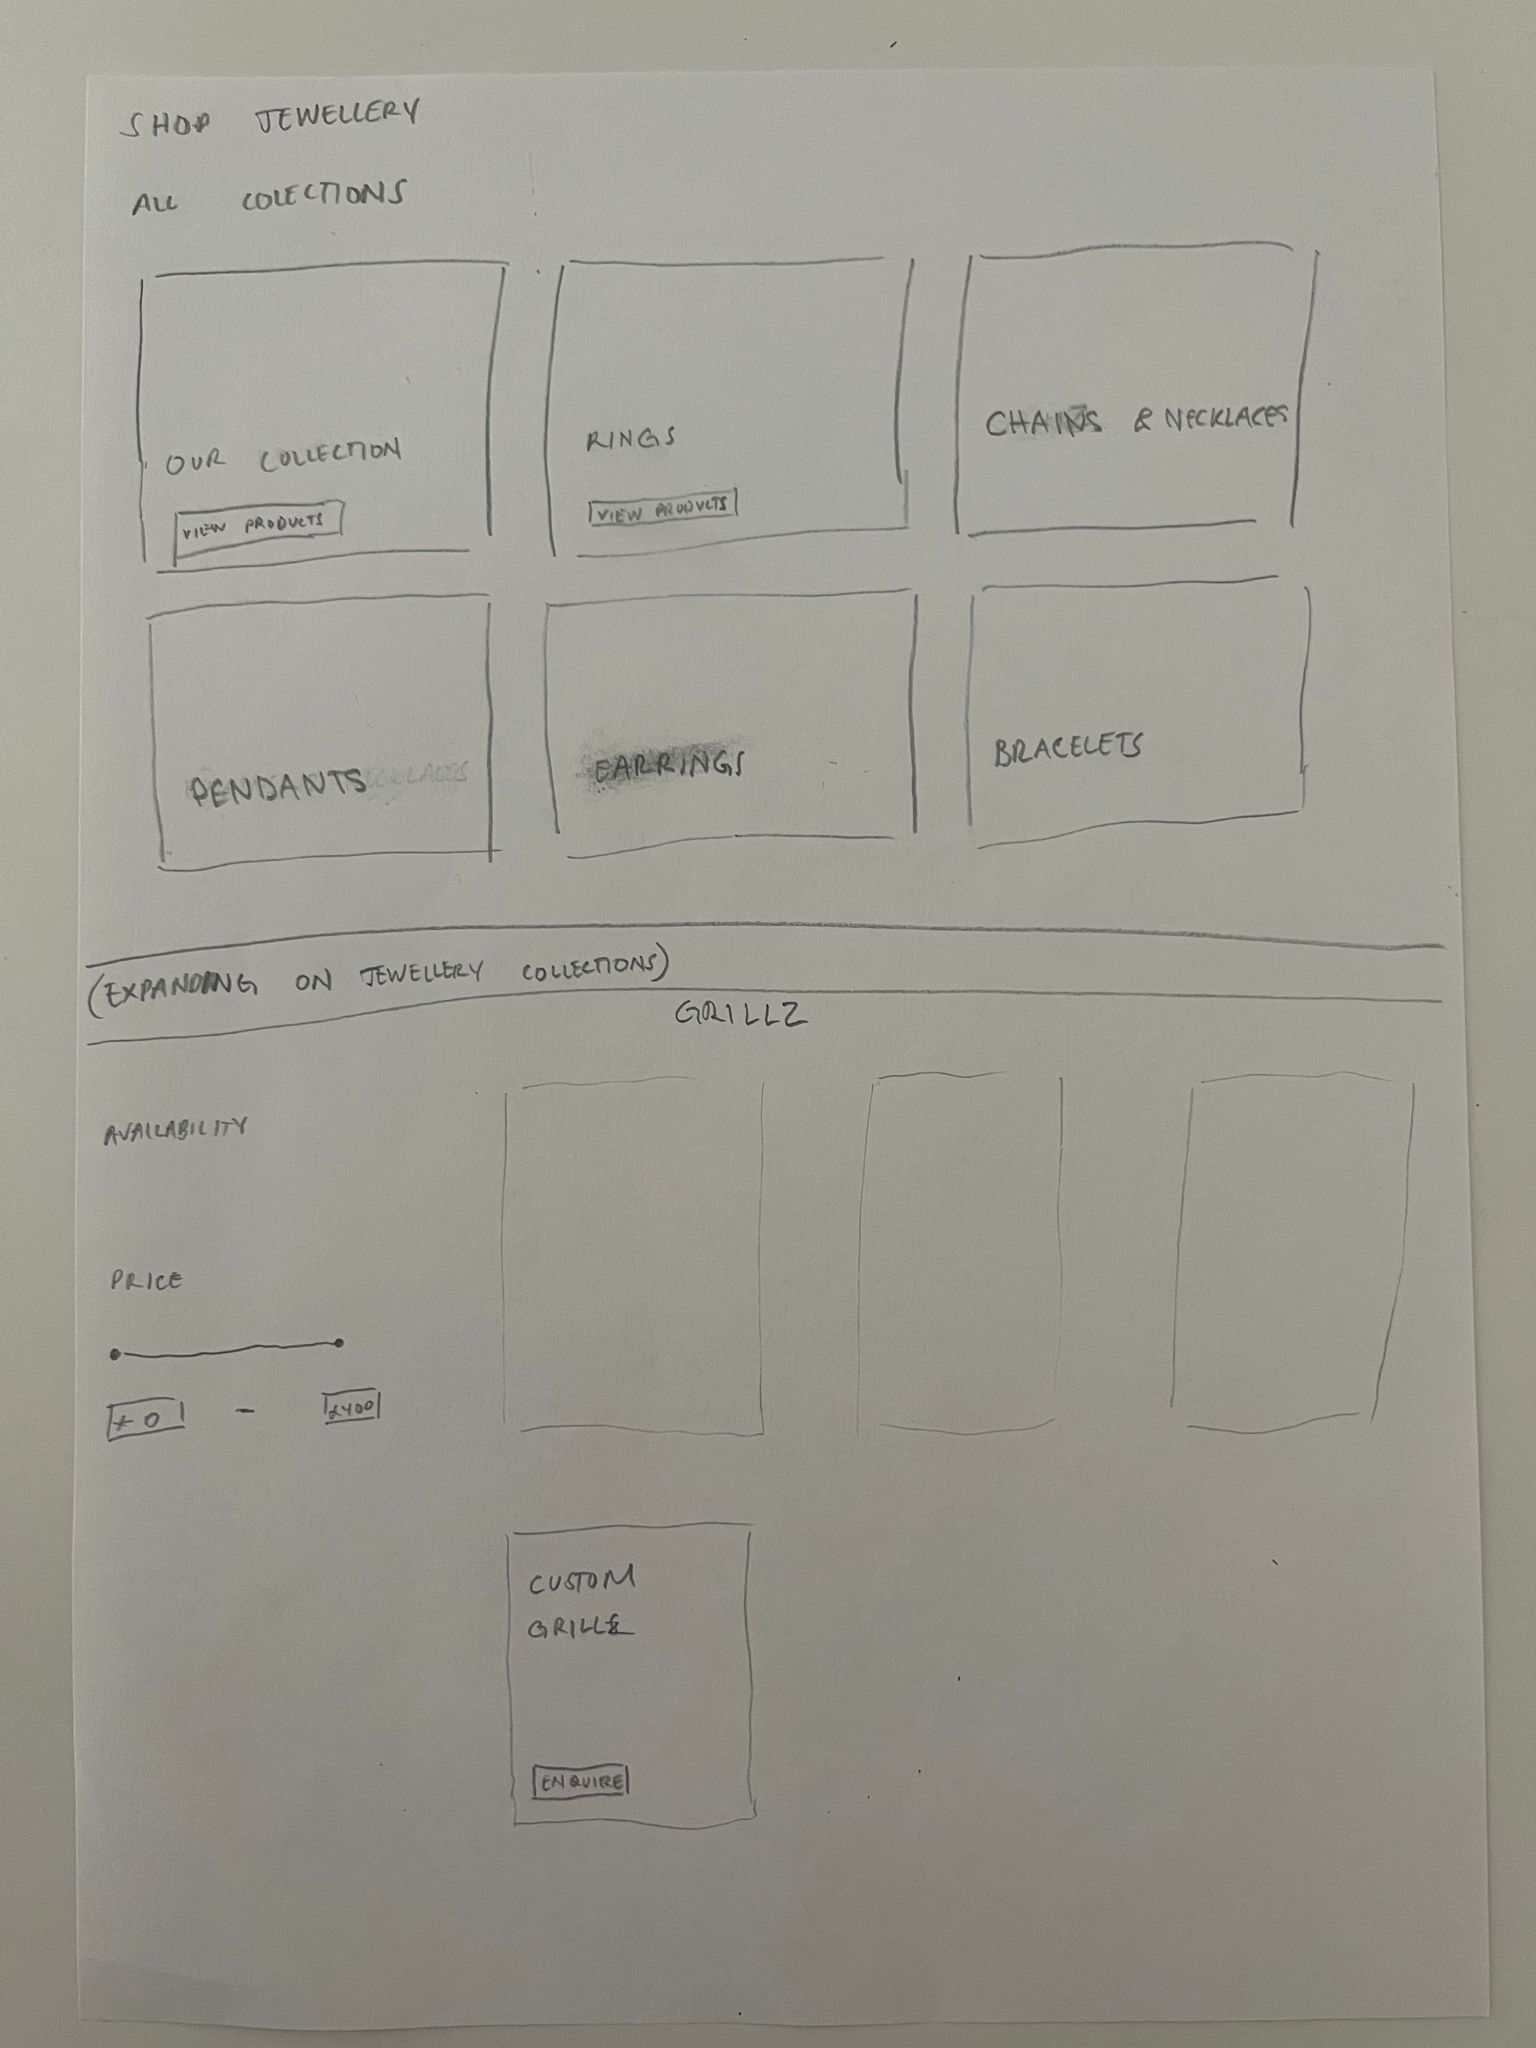 SHOP JEWELLERY
ALL COLECTIONS
OUR COLLECTION
VIEW PRODUCTS
RINGS
VIEW PRODUCTS
CHAINS & NECKLACES
PENDANTS
EARRINGS
BRACELETS
(EXPANDING ON JEWELLERY COLLECTIONS)
GRILLZ
AVAILABILITY
PRICE
£0 - £400
CUSTOM
GRILLZ
ENQUIRE